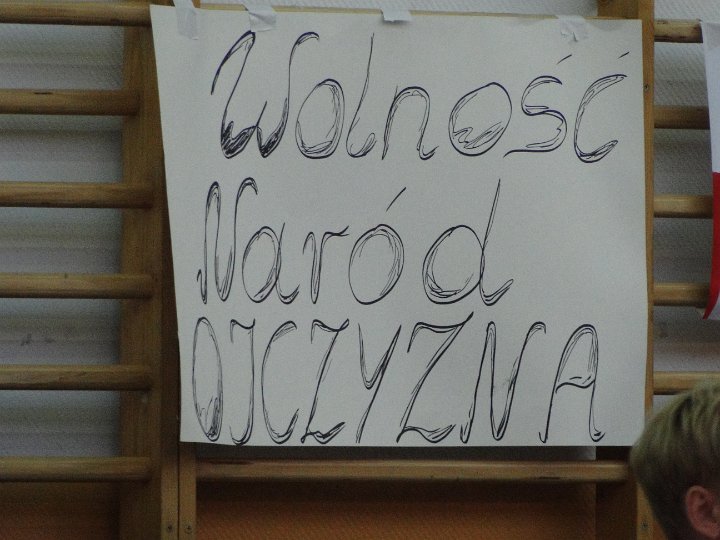 Wolność
Naród
OJCZYZNA